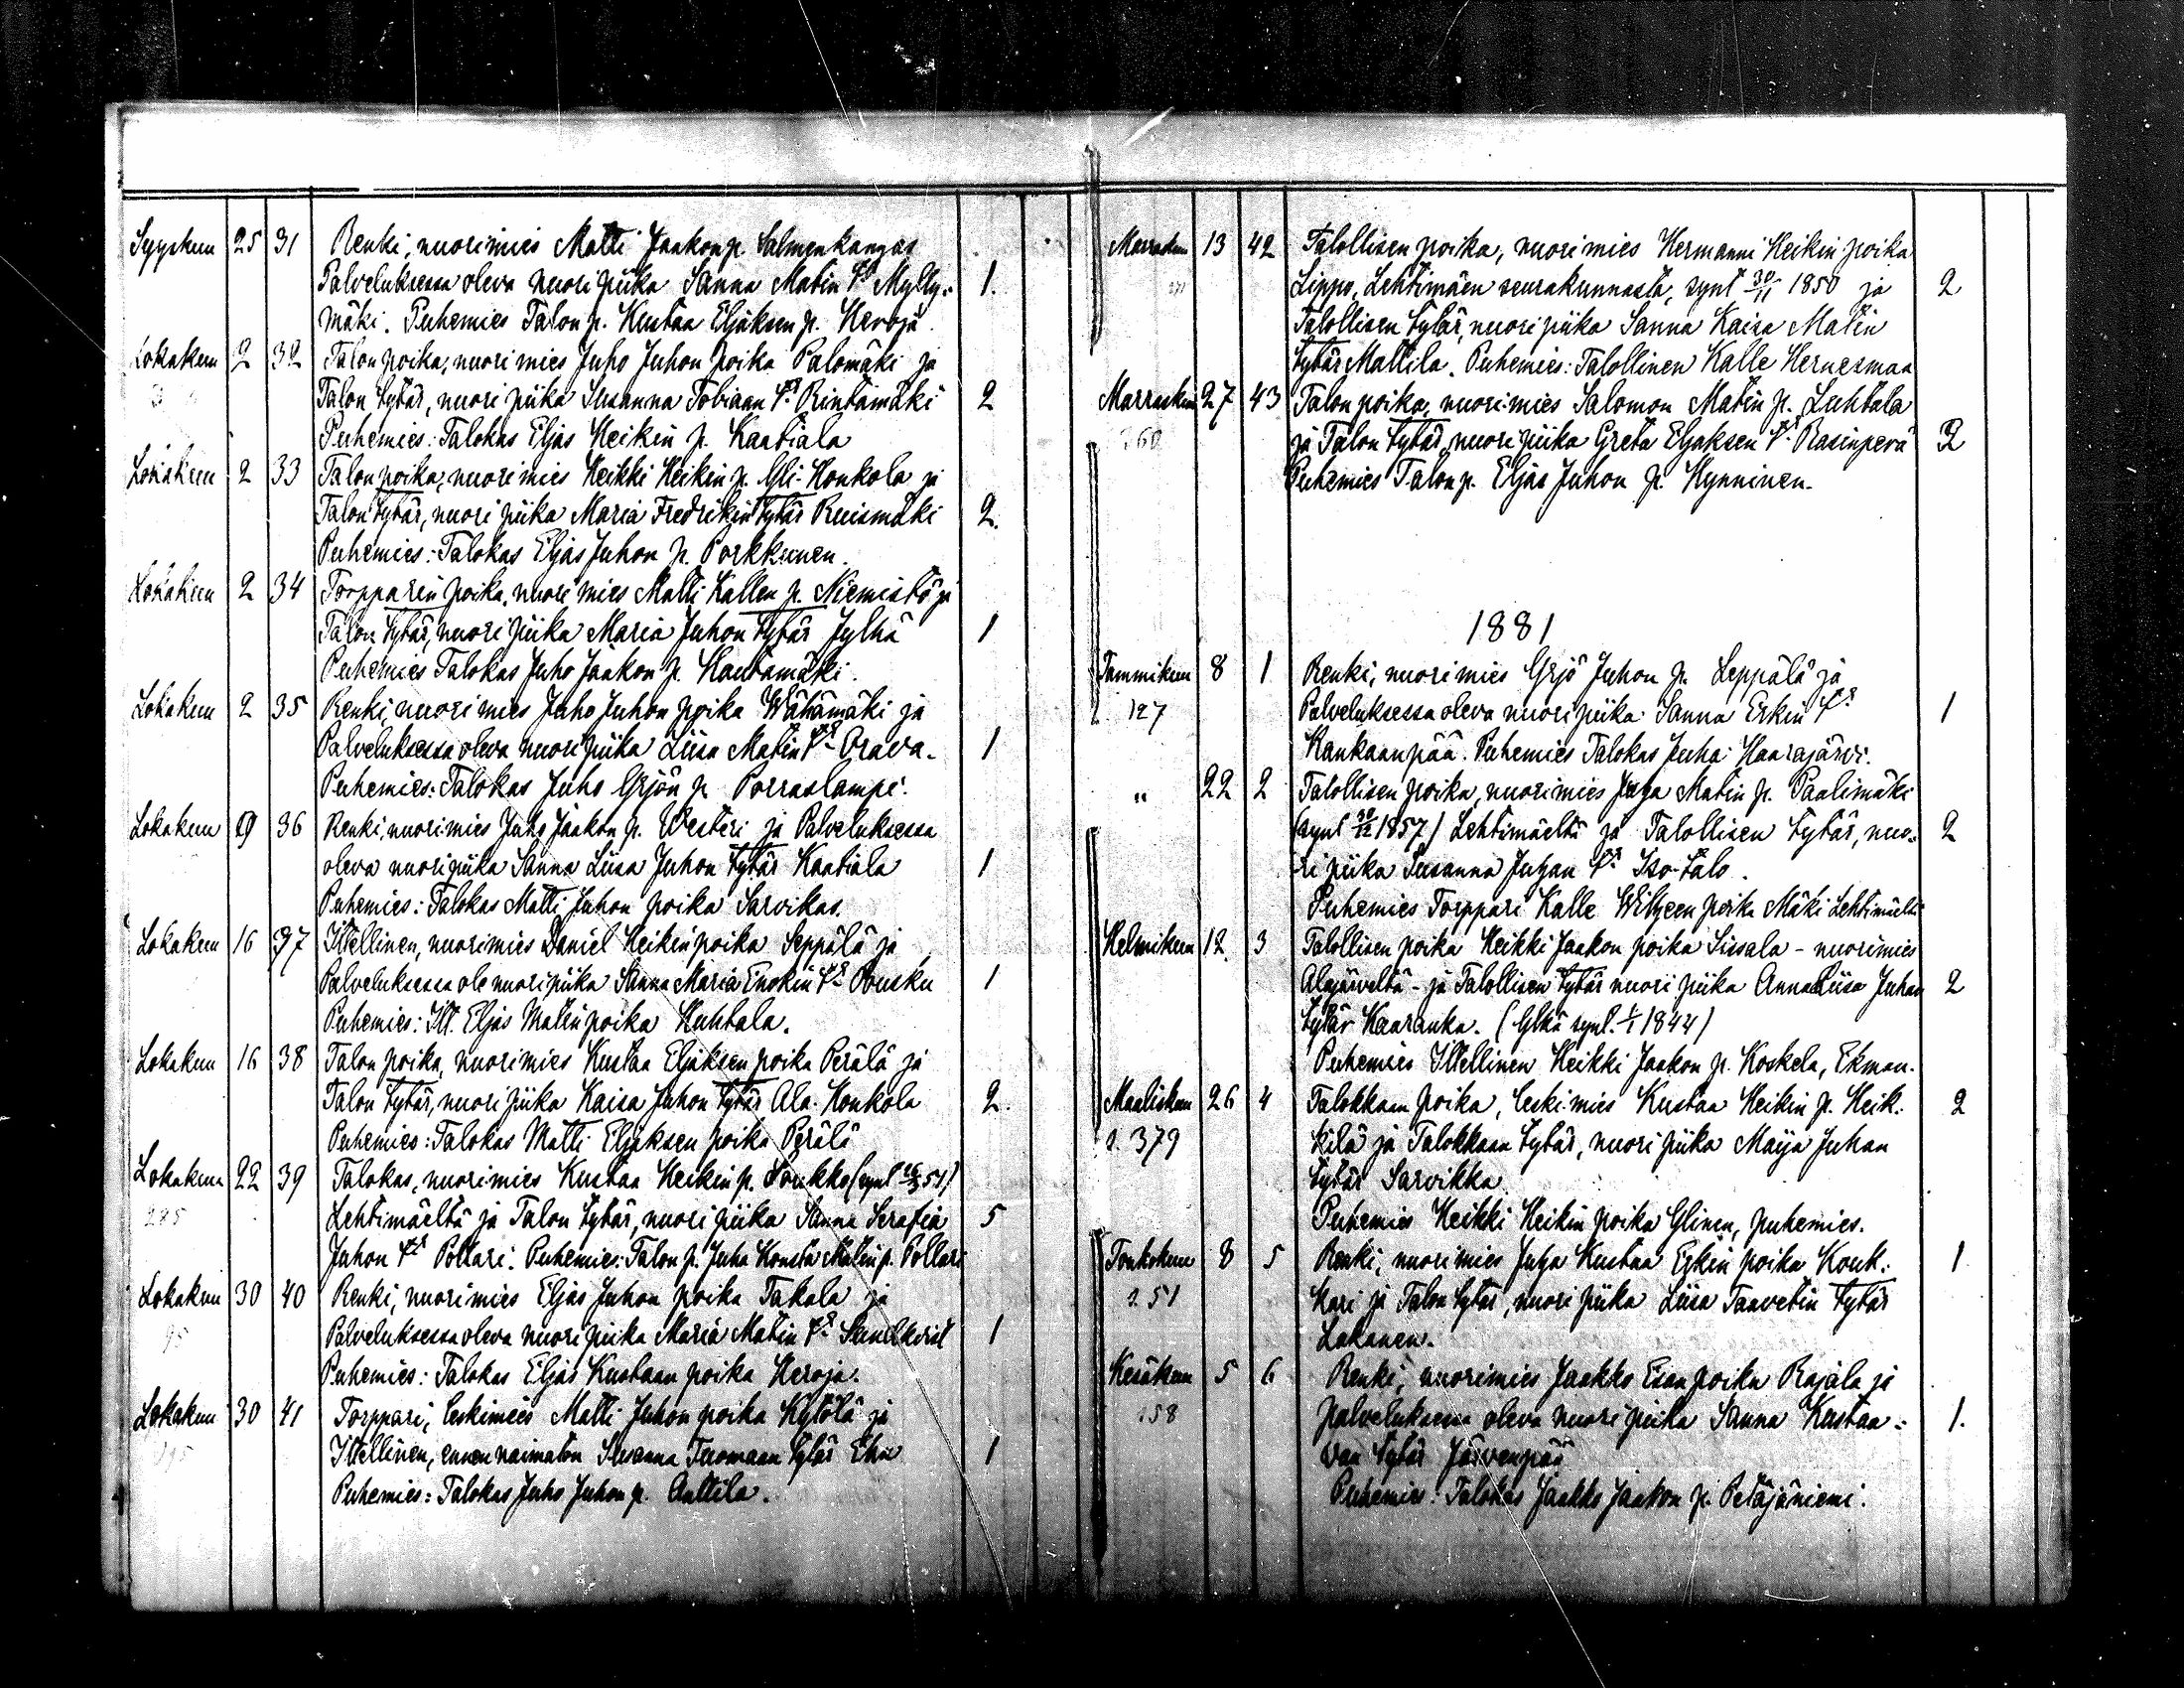 Syyskuu 25 31 Renki, nuorimies Matti Jaakon p. Salmenkangas
Palveluksessa oleva nuori piika Sanna Matin tr Mylly- 1.
mäki. Puhemies Talon p. Kustaa Eljaksen p. Heroja
Lokakuu 2 32 Talon poika, nuori mies Juho Juhon poika Palomäki ja
Talon tytär, nuori piika Susanna Tobiaan tr Rintamäki 2
Puhemies: Talokas Eljas Heikin p. Kaatiala
Lokakuu 2 33 Talon poika, nuori mies Heikki Heikin p. Yli-Honkola ja
Talon tytär, nuori piika Maria Fredrikin tytär Ruismäki 2.
Puhemies: Talokas Eljas Juhon p. Porkkunen.
Lokakuu 2 34 Torpparin poika, nuori mies Matti Kallen p. Niemistö ja
Talon tytär, nuori piika Maria Juhon tytär Jylhä 1
Puhemies Talokas Juho Jaakon p. Hautamäki.
Lokakuu 2 35 Renki, nuori mies Juho Juhon poika Wähämäki ja
Palveluksessa oleva nuori piika Liisa Matin tr Orava. 1
Puhemies: Talokas Juho Yrjön p. Porraslampi.
Lokakuu 9 36 Renki, nuorimies Juho Jaakon p. Westeri ja Palveluksessa
oleva nuori piika Sanna Liisa Juhon tytär Kaatiala 1
Puhemies: Talokas Matti Juhon poika Sarvikas.
Lokakuu 16 37 Itellinen, nuorimies Daniel Heikin poika Seppälä ja
Palveluksessa ole nuori piika Sanna Maria Enokin tr Pousku 1
Puhemies: Itt. Eljas Matin poika Huhtala.
Lokakuu 16 38 Talon poika, nuorimies Kustaa Eljaksen poika Perälä ja
Talon tytär, nuori piika Kaisa Juhon tytär Ala-Honkola 2.
Puhemies: Talokas Matti Eljaksen poika Perälä
Lokakuu 22 39 Talokas, nuorimies Kustaa Heikin p. Soukko (synt 54)
285 Lehtimäeltä ja Talon tytär, nuori piika Sanna Serafia 5
Juhon tr Pollari. Puhemies: Talon p. Juha Konsta Matin p. Pollari
Lokakuu 30 40 Renki, nuorimies Eljas Juhon poika Takala ja
95 Palveluksessa oleva nuori piika Maria Matin tr Sandkvist 1
Puhemies: Talokas Eljas Kustaan poika Heroja.
Lokakuu 30 41 Torppari, leskimies Matti Juhon poika Kytölä ja
Itellinen, ennen naimaton Susanna Tuomaan tytär Ehn 1
Puhemies: Talokas Juho Juhon p. Anttila.
Marraskuu 13 42 Talollisen poika, nuorimies Hermanni Heikin poika
Lippo, Lehtimäen seurakunnasta, synt 30/11 1850 ja 2
Talollisen tytär, nuori piika Sanna Kaisa Matin
tytär Mattila. Puhemies: Talollinen Kalle Hernesmaa
Marraskuu 27 43 Talon poika, nuori-mies Salomon Matin p. Luhtala
360 ja Talon tytär, nuori piika Greta Eljaksen tr Rasinperä 2
Puhemies Talon p. Eljas Juhon p. Hynninen.
1881
Tammikuu 8 1 Renki, nuorimies Yrjö Juhon p. Leppälä ja
127 Palveluksessa oleva nuori piika Sanna Erkin tr 1
Kankaanpää. Puhemies Talokas Juha Haarajärvi.
" 22 2 Talollisen poika, nuorimies Juha Matin p. Paalimäki
(synt 30/12 1857) Lehtimäeltä ja Talollisen tytär, nuo- 2
ri piika Susanna Juhan tr Iso-talo.
Puhemies Torppari Kalle Willjeen poika Mäki Lehtimäeltä
Helmikuu 12. 3 Talollisen poika Heikki Jaakon poika Sissala - nuorimies
Alajärveltä - ja Talollisen tytär nuori piika Anna Liisa Juhan 2
tytär Kaaranka. (Ylkä synt. 1/1 1844)
Puhemies Itellinen Heikki Jaakon p. Koskela, Ekman.
Maaliskuu 26 4 Talokkaan poika, leski-mies Kustaa Heikin p. Heik- 2
s. 379 kilä ja Talokkaan tytär, nuori piika Maija Juhan
tytär Sarvikka.
Puhemies Heikki Heikin poika Ylinen, puhemies.
Toukokuu 8 5 Renki, nuorimies Juha Kustaa Erkin poika Kouk- 1
s. 51 kari ja Talon tytär, nuori piika Liisa Taavetin tytär
Lakanen.
Kesäkuu 5 6 Renki, nuorimies Jaakko Esan poika Rajala ja
158 palveluksessa oleva nuori piika Sanna Kustaa- 1.
van tytär Järvenpää
Puhemies: Talokas Jaakko Jaakon p. Petäjäniemi.